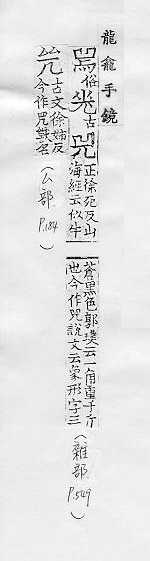 龍龕手鏡
俗
古
正徐死反山
海經云似牛
蒼黑色郭璞云一角重千斤
也今作兕說文云象形字三
(雜部 P.549)
古文徐姊反
今作兕獸名
(厶部 P.184)